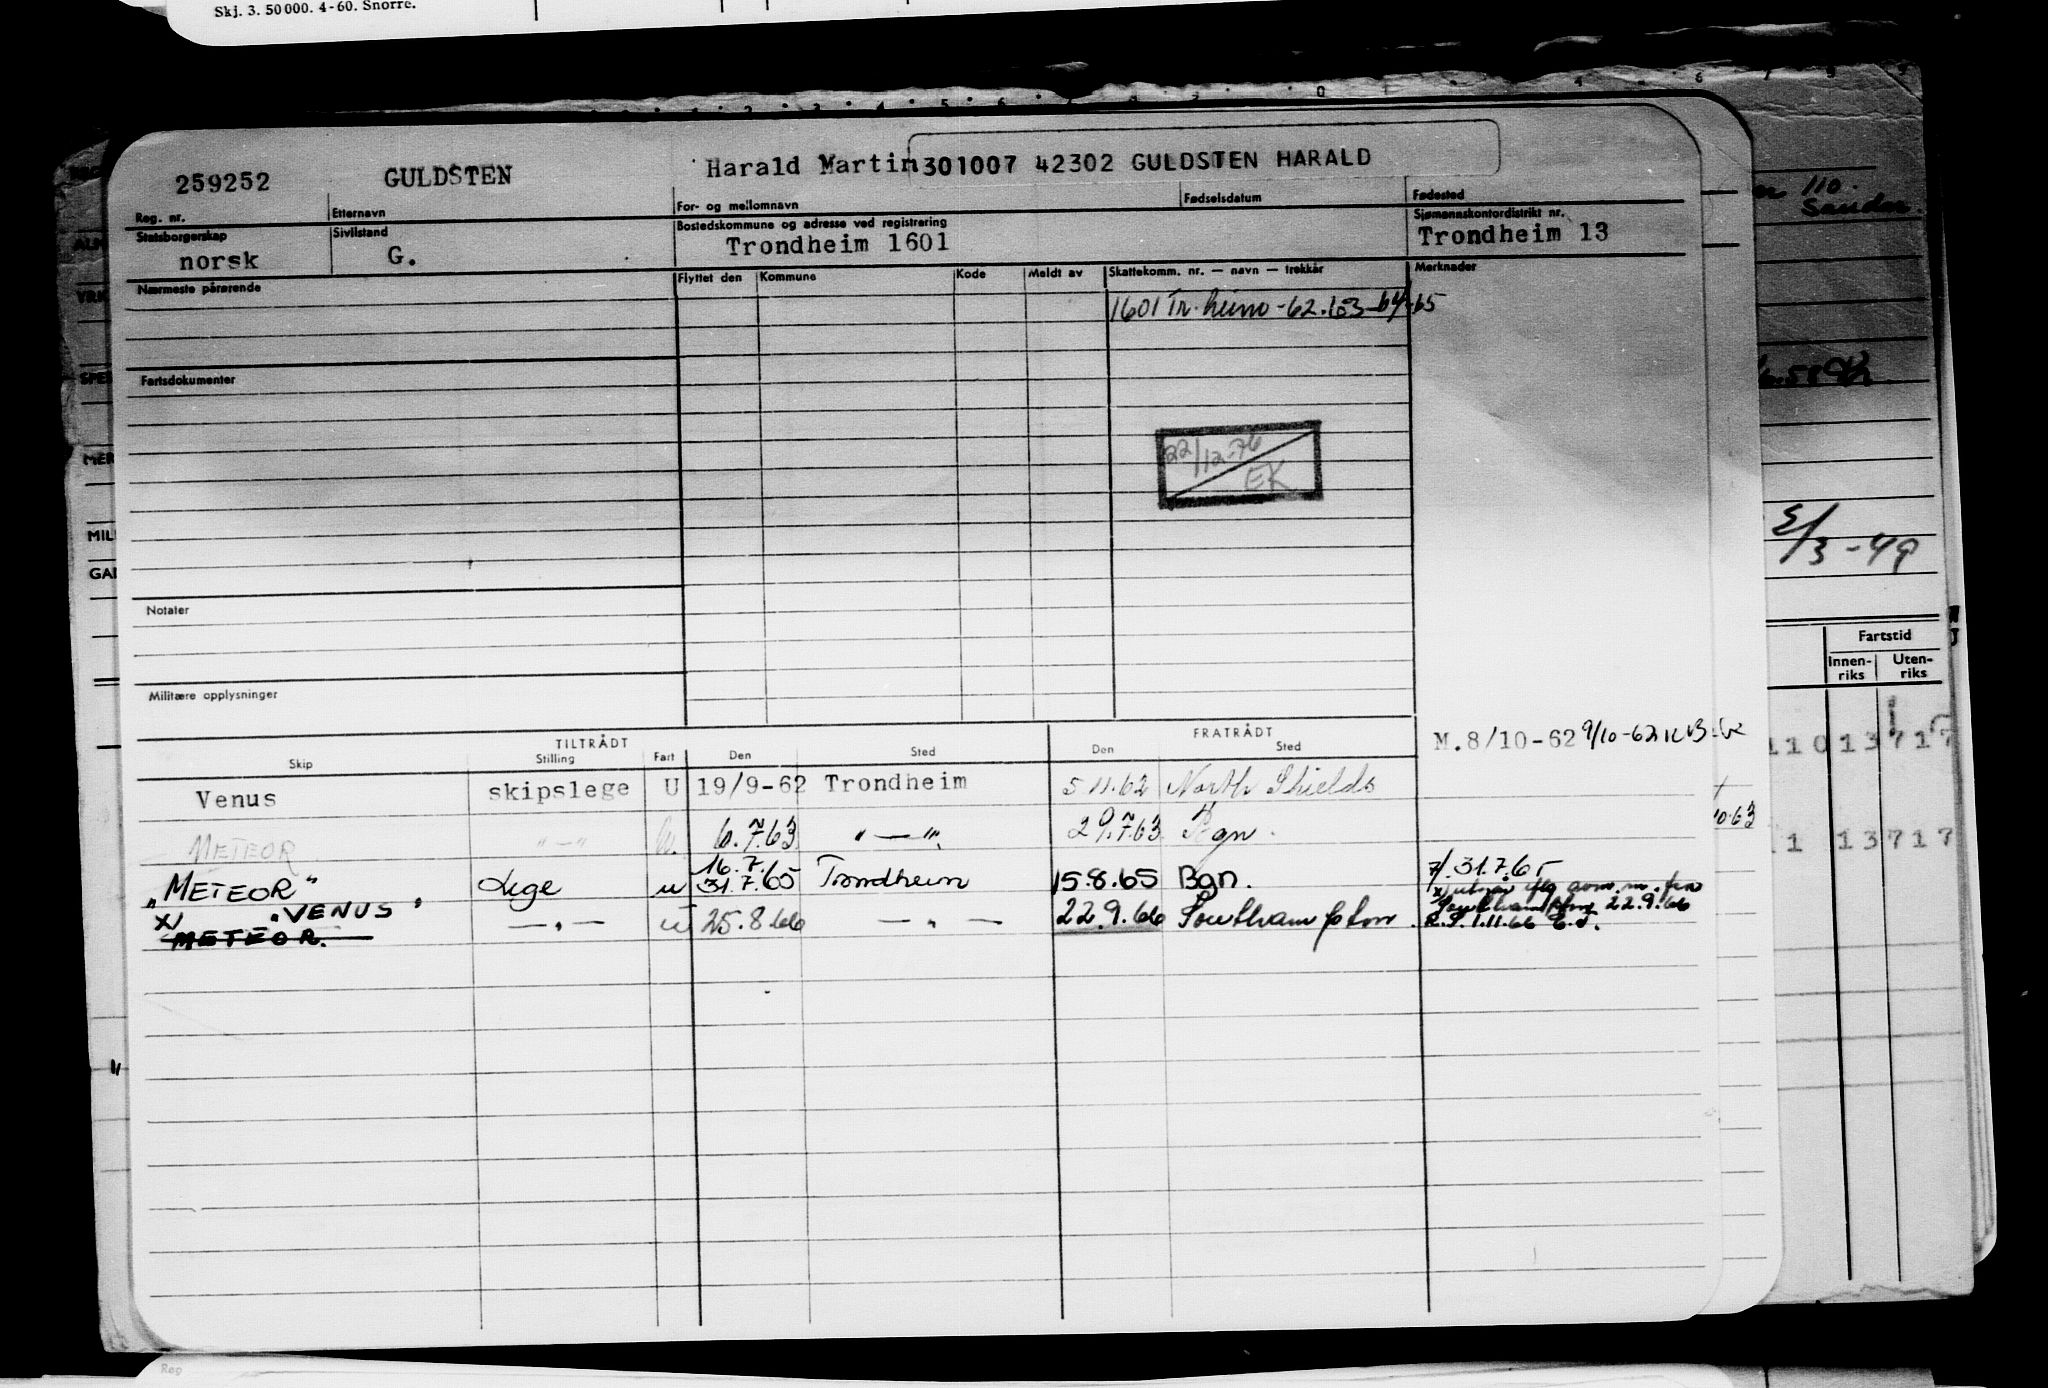 Skj. 3. 50000. 4-60. Snorre.
259252 GULDSTEN Harald Martin 301007 42302 GULDSTEN HARALD
Reg. nr. Etternavn For- og mellomnavn Fødselsdatum Fødested
Statsborgerskap Sivilstand Bostedskommune og adresse ved registrering Sjømannskontordistrikt nr.
norsk G. Trondheim 1601 Trondheim 13
Nærmeste pårørende Flyttet den Kommune Kode Meldt av Skattekomm. nr. — navn — trekkår Merknader
1601 Tr.heim -62.63-64-65
Fartsdokumenter
22/12-76
EK
Notater
Militære opplysninger
TILTRÅDT FRATRÅDT
Skip Stilling Fart Den Sted Den Sted
M.8/10-62 9/10-62
Venus skipslege U 19/9-62 Trondheim 5.11.62 North Shields
METEOR " — " U. 6.7.63 " — " 29.7.63 Bgn.
16.7.
"METEOR" Lege u 31.7.65 Trondheim 15.8.65 Bgn. 31.7.65
x) "VENUS" — " — u 25.8.66 — " — 22.9.66 Southampton 22.9.66
METEOR. 1.11.66
110.
Sander
ALM
YRK
SPES
MER
MIL
GAI
/3-49
Fartstid
Innen-riks Uten-riks
110 13717
10.63
1 13717
Reg